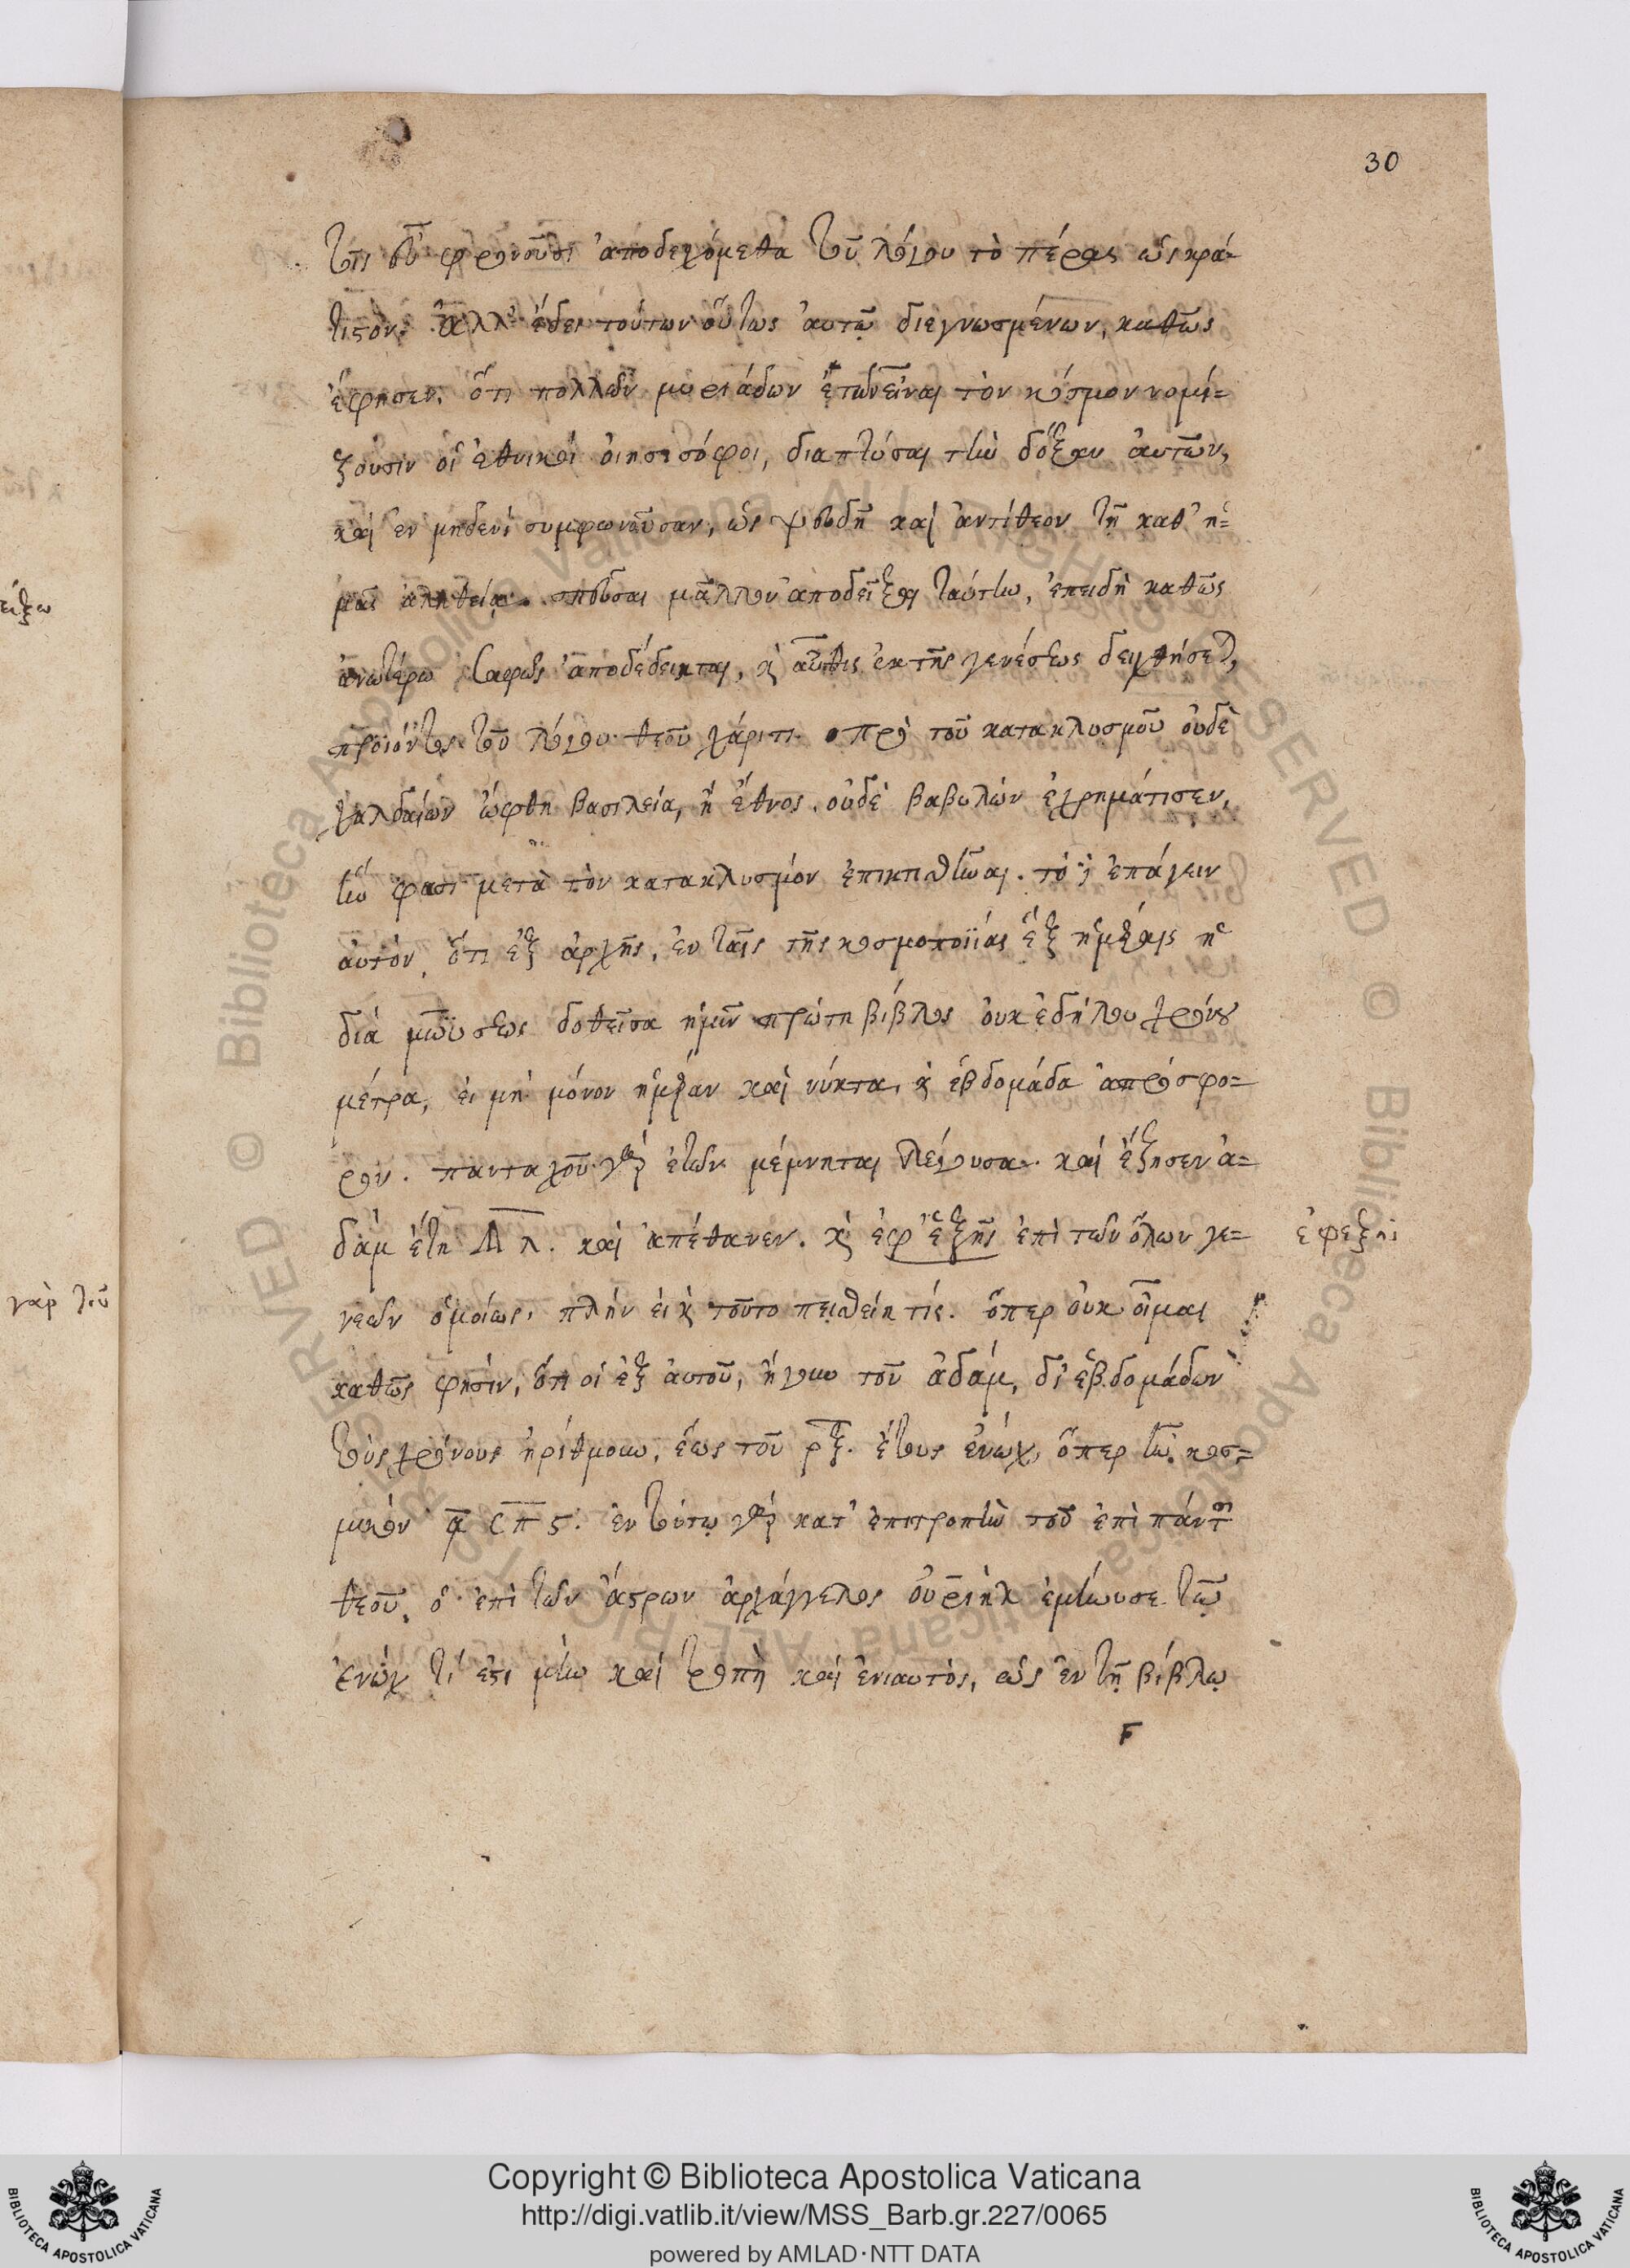 30
τοῖς εὖ φρονοῦσι ἀποδεχόμεθα τοῦ λόγου τὸ πέρας ὡς κρά-
τιστον. ἀλλ' ἔδει τούτων οὕτως αὐτῷ διεγνωσμένων, καθὼς
ἔφησεν, ὅτι πολλῶν μυριάδων ἐτῶν εἶναι τὸν κόσμον νομί-
ζουσιν οἱ ἐθνικοὶ οἰησισόφοι, διαπτύσαι τὴν δόξαν αὐτῶν,
καὶ ἐν μηδενὶ συμφωνοῦσαν, ὡς ψευδῆ καὶ ἀντίθεον τῇ καθ' ἡ-
μᾶς ἀληθείᾳ. σπεῦσαι μᾶλλον ἀποδεῖξαι ταύτην, ἐπειδὴ καθὼς
ἀνωτέρω σαφῶς ἀποδέδεικται, κ αὖθις ἐκ τῆς γενέσεως δειχθήσετ,
προϊόντος τοῦ λόγου θεοῦ χάριτι. πρὸ τοῦ κατακλυσμοῦ οὐδὲ
χαλδαίων ὤφθη βασιλεία, ἢ ἔθνος, οὐδὲ βαβυλὼν ἐχρημάτισεν,
ἣν φασι μετὰ τὸν κατακλυσμὸν ἐπικτισθῆναι. τό γ ἐπάγειν
αὐτὸν ὅτι ἐξ ἀρχῆς, ἐν ταῖς τῆς κοσμοποιΐας ἓξ ἡμέραις ἡ
διὰ μωϋσέως δοθεῖσα ἡμῖν πρώτη βίβλος οὐκ ἐδήλου χρόνου
μέτρα, εἰ μὴ μόνον ἡμέραν καὶ νύκτα, κ ἑβδομάδα ἀπρόσφο-
ρον. πανταχοῦ γὰρ ἐτῶν μέμνηται λέγουσα. καὶ ἔζησεν ἀ-
δὰμ ἔτη ϡλ. καὶ ἀπέθανεν. κ ἐφ' ἑξῆς ἐπὶ τῶν ὅλων γε-
ἐφεξῆς
νεῶν ὁμοίως, πλὴν εἰ κ τοῦτο πεισθείη τίς. ὅπερ οὐκ οἶμαι
καθὼς φησίν, ὅτι οἱ ἐξ αὐτοῦ, ἤγουν τοῦ ἀδάμ, δι' ἑβδομάδων
τοὺς χρόνους ἠρίθμουν, ἕως τοῦ ρξε. ἔτους ἐνώχ, ὅπερ ἦν κοσ-
μικὸν ͵ασπϛ. ἐν τούτῳ γὰρ κατ' ἐπιτροπὴν τοῦ ἐπὶ πάντων
θεοῦ, ὁ ἐπὶ τῶν ἄστρων ἀρχάγγελος οὐριὴλ ἐμήνυσε τῷ
ἐνὼχ τί ἐστι μὴν καὶ τροπὴ καὶ ἐνιαυτὸς, ὡς ἐν τῇ βίβλῳ
F
γὰρ τοῦ
Copyright © Biblioteca Apostolica Vaticana
http://digi.vatlib.it/view/MSS_Barb.gr.227/0065
powered by AMLAD·NTT DATA